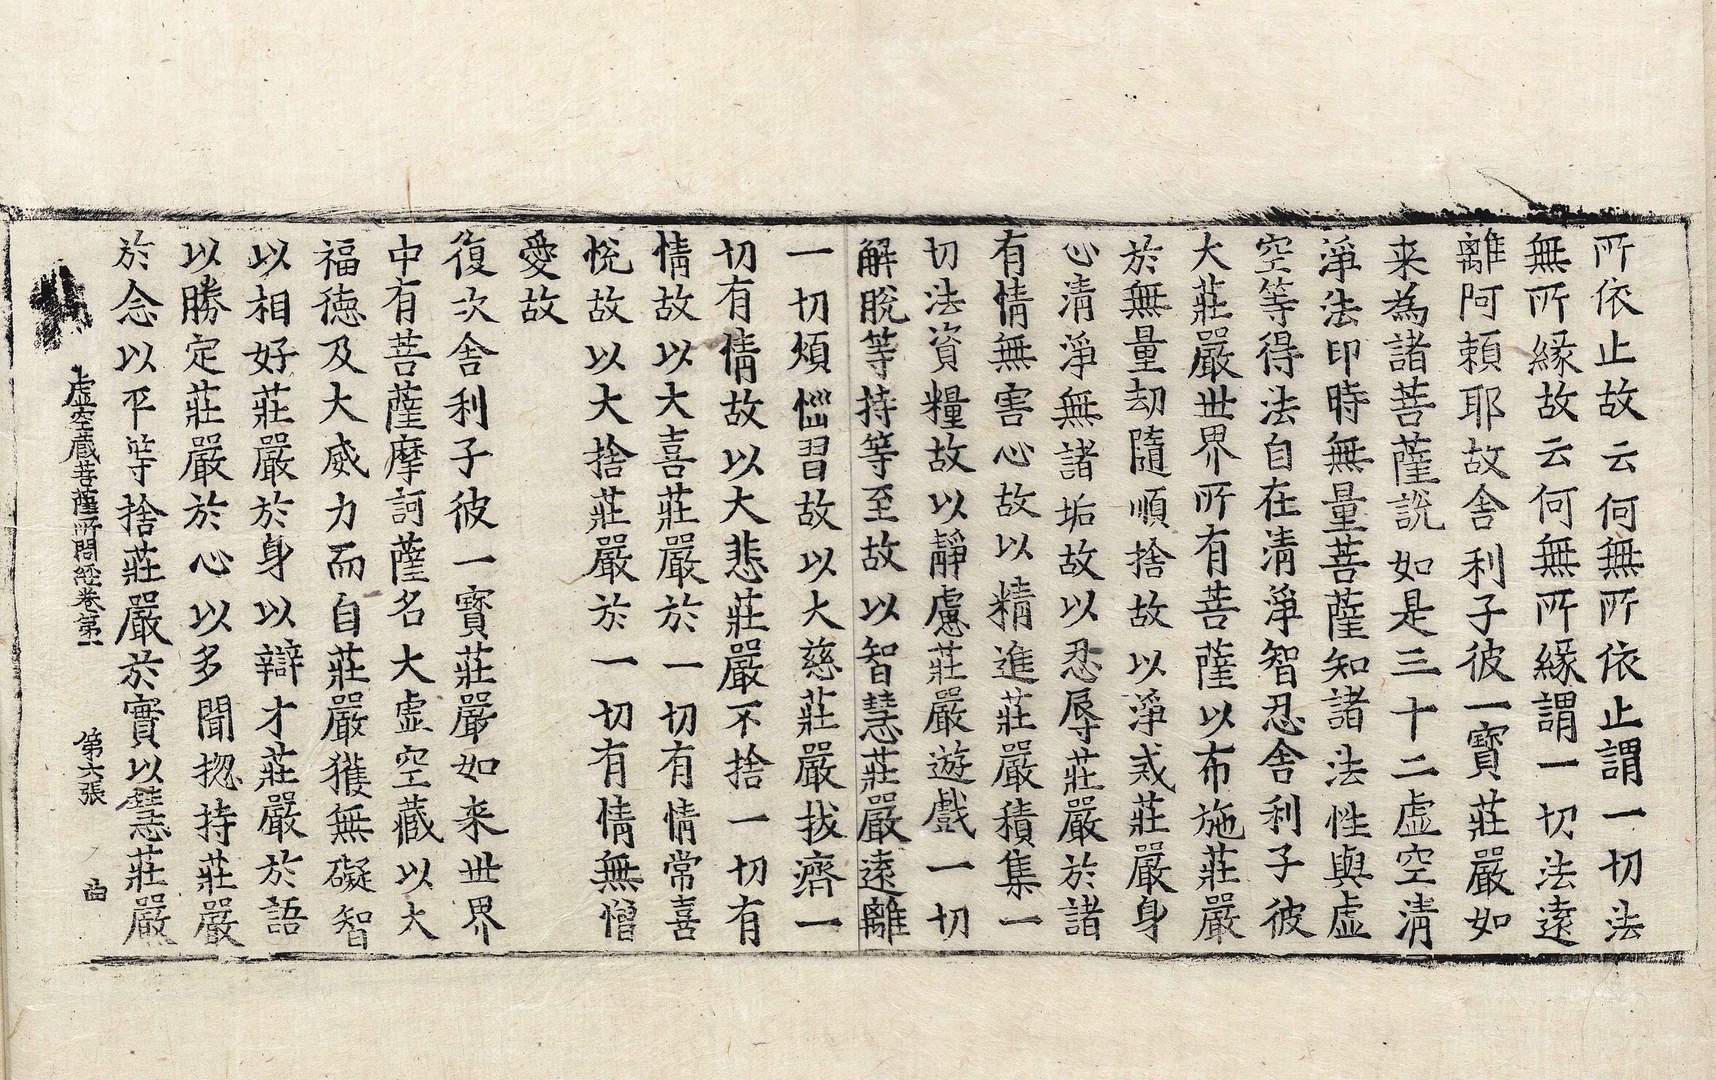 所依止故云何無所依止謂一切法
無所緣故云何無所緣謂一切法遠
離阿頼耶故舍利子彼一寶莊嚴如
来為諸菩薩說如是三十二虛空清
淨法印時無量菩薩知諸法性與虛
空等得法自在清淨智忍舍利子彼
大莊嚴世界所有菩薩以布施莊嚴
於無量劫隨順捨故以淨戒莊嚴身
心清淨無諸垢故以忍辱莊嚴於諸
有情無害心故以精進莊嚴積集一
切法資糧故以靜慮莊嚴遊戲一切
解脫等持等至故以智慧莊嚴遠離
一切煩惱習故以大慈莊嚴拔濟一
切有情故以大悲莊嚴不捨一切有
情故以大喜莊嚴於一切有情常喜
悅故以大捨莊嚴於一切有情無憎
愛故
復次舍利子彼一寶莊嚴如来世界
中有菩薩摩訶薩名大虛空藏以大
福德及大威力而自莊嚴獲無礙智
以相好莊嚴於身以辯才莊嚴於語
以勝定莊嚴於心以多聞揔持莊嚴
於念以平等捨莊嚴於實以慧莊嚴
虛空藏菩薩所問經卷第一 第六張 曲